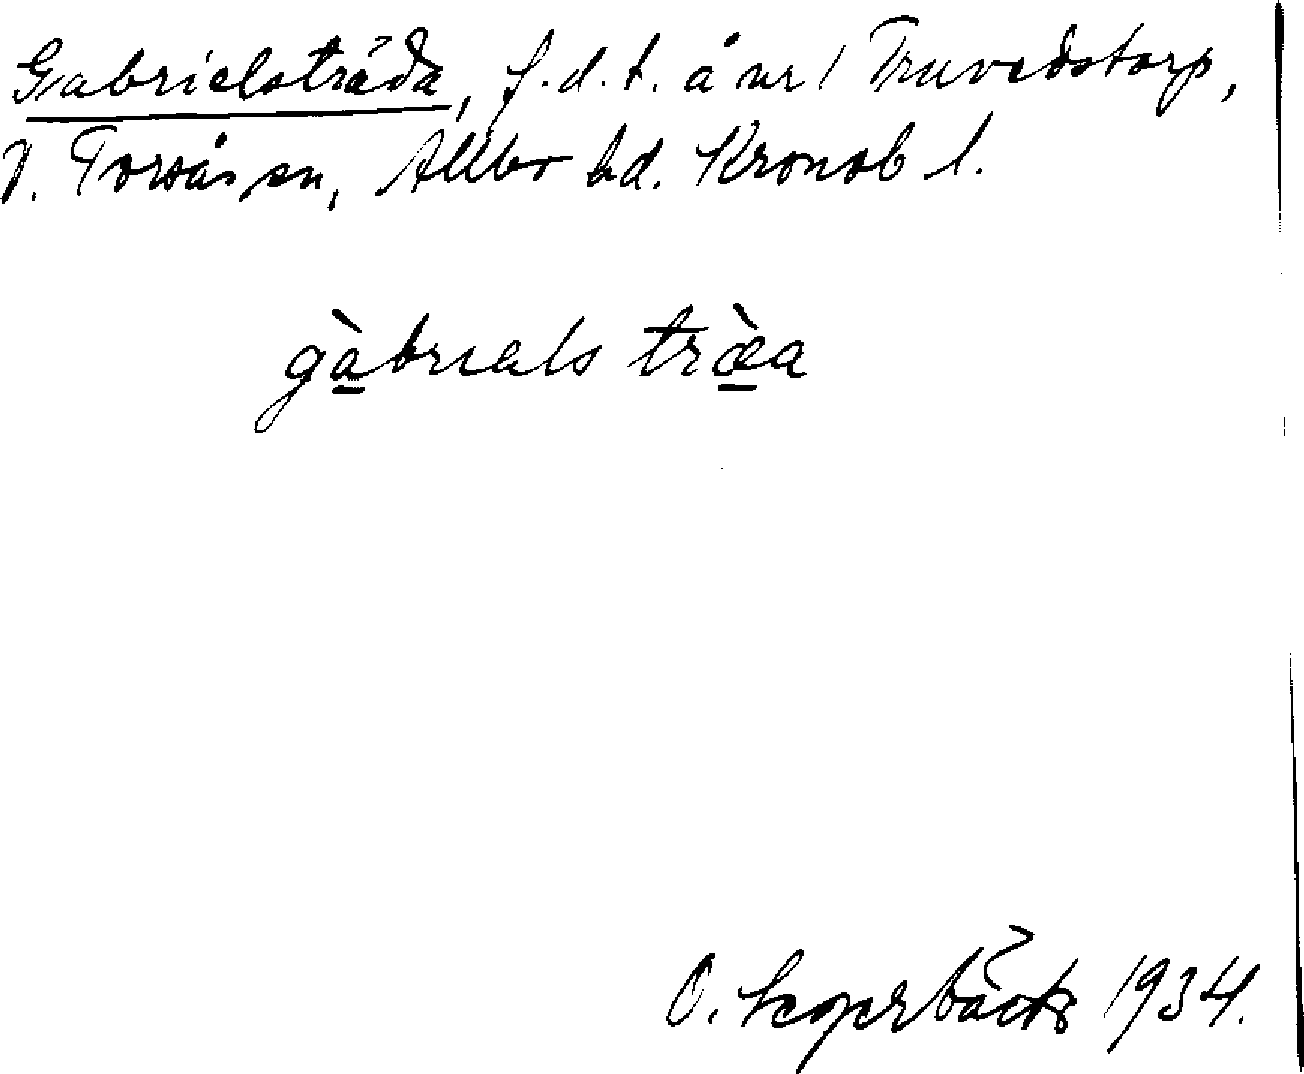 Gabrielsträda, f.d.t. å nr 1 Truvedstorp,
V. Torsås sn, Allbo hd. Kronob l.
gàbriels træ̀a
O. Segerbäck 1934.